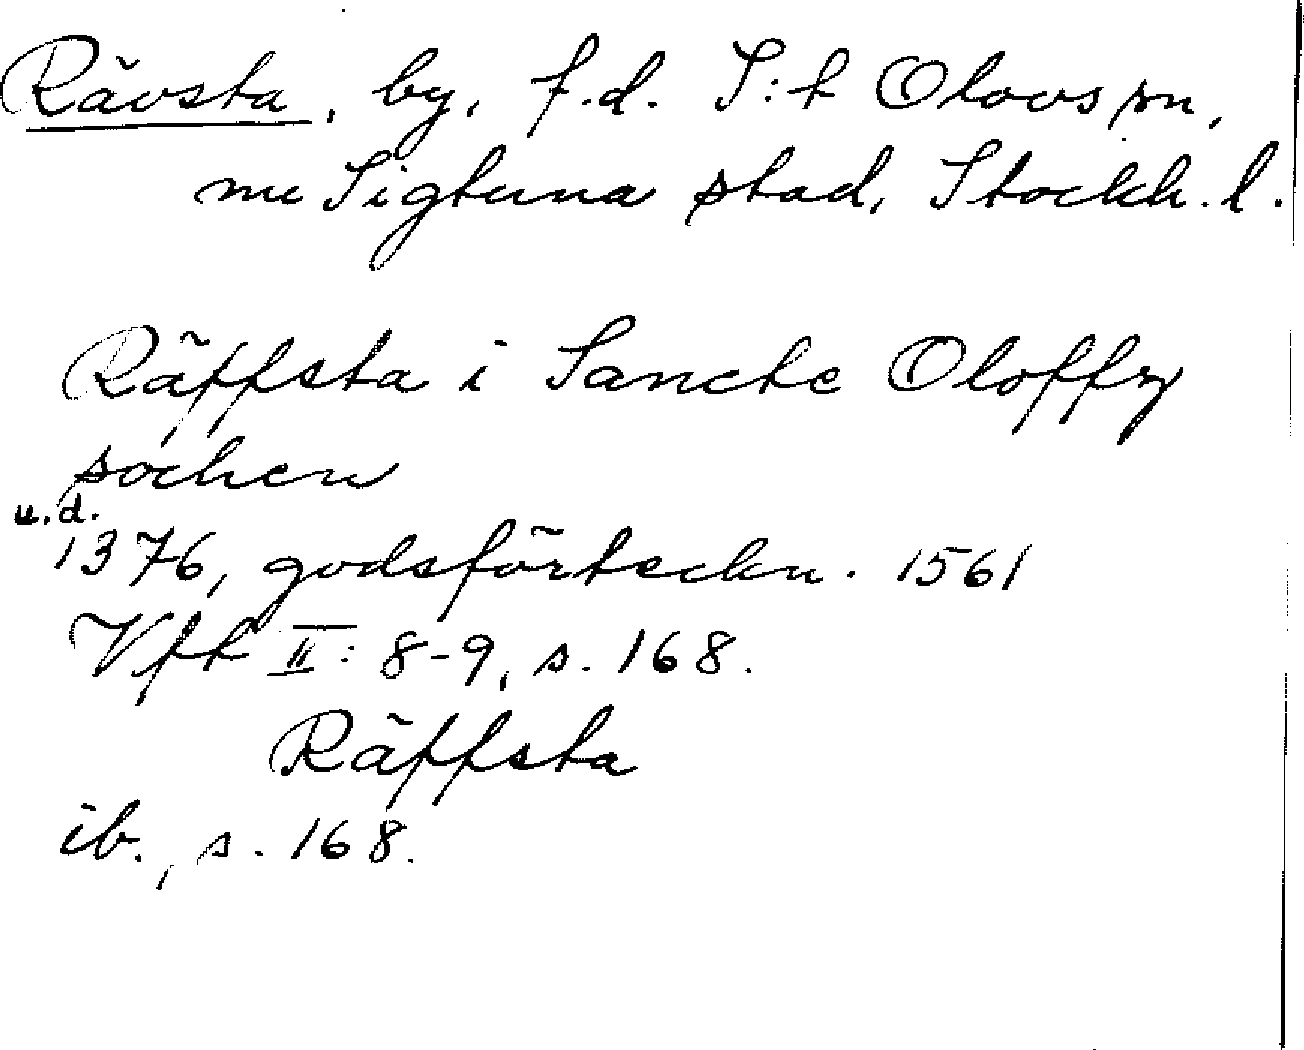 Rävsta, by, f.d. S:t Olovs sn,
nu Sigtuna stad, Stockh. l.
Räffsta i Sancte Oloffz
sochen
u.d.
1376, godsförteckn. 1561
Vfk II: 8-9, s. 168.
Räffsta
ib., s. 168.